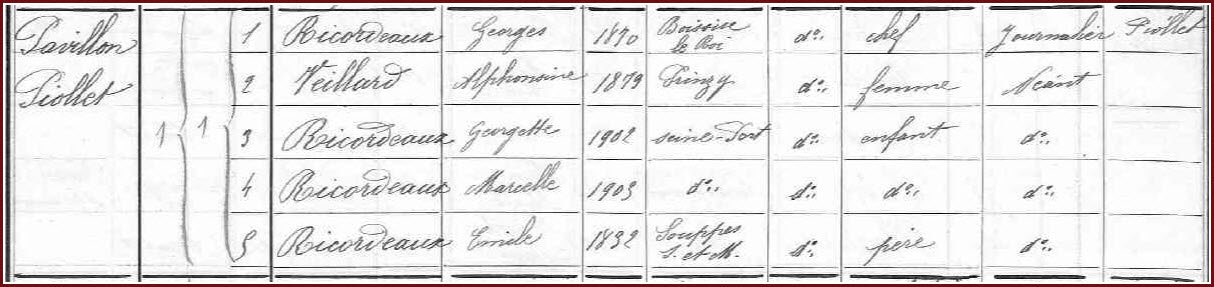 Pavillon Piollet 1 1 1 Ricordeaux Georges 1870 Boissise le Roi do. chef Journalier Piollet
2 Veillard Alphonsine 1879 Pringy do. femme Néant
3 Ricordeaux Georgette 1902 seine-Port do. enfant do.
4 Ricordeaux Marcelle 1903 do. do. do. do.
5 Ricordeaux Emile 1832 Souppes S. et M. do. père do.